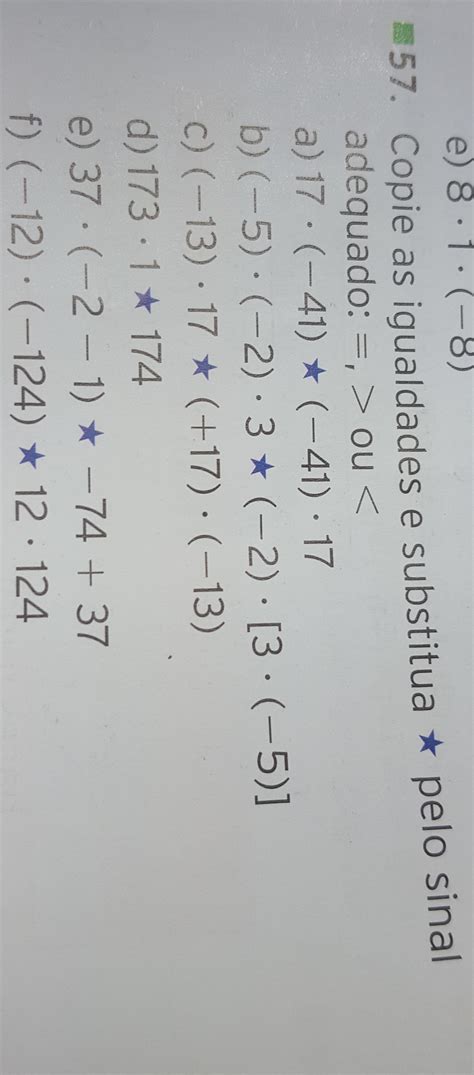 e) 8 · 1 · (−8)
57. Copie as igualdades e substitua ★ pelo sinal
adequado: =, > ou <
a) 17 · (−41) ★ (−41) · 17
b) (−5) · (−2) · 3 ★ (−2) · [3 · (−5)]
c) (−13) · 17 ★ (+17) · (−13)
d) 173 · 1 ★ 174
e) 37 · (−2 − 1) ★ −74 + 37
f) (−12) · (−124) ★ 12 · 124